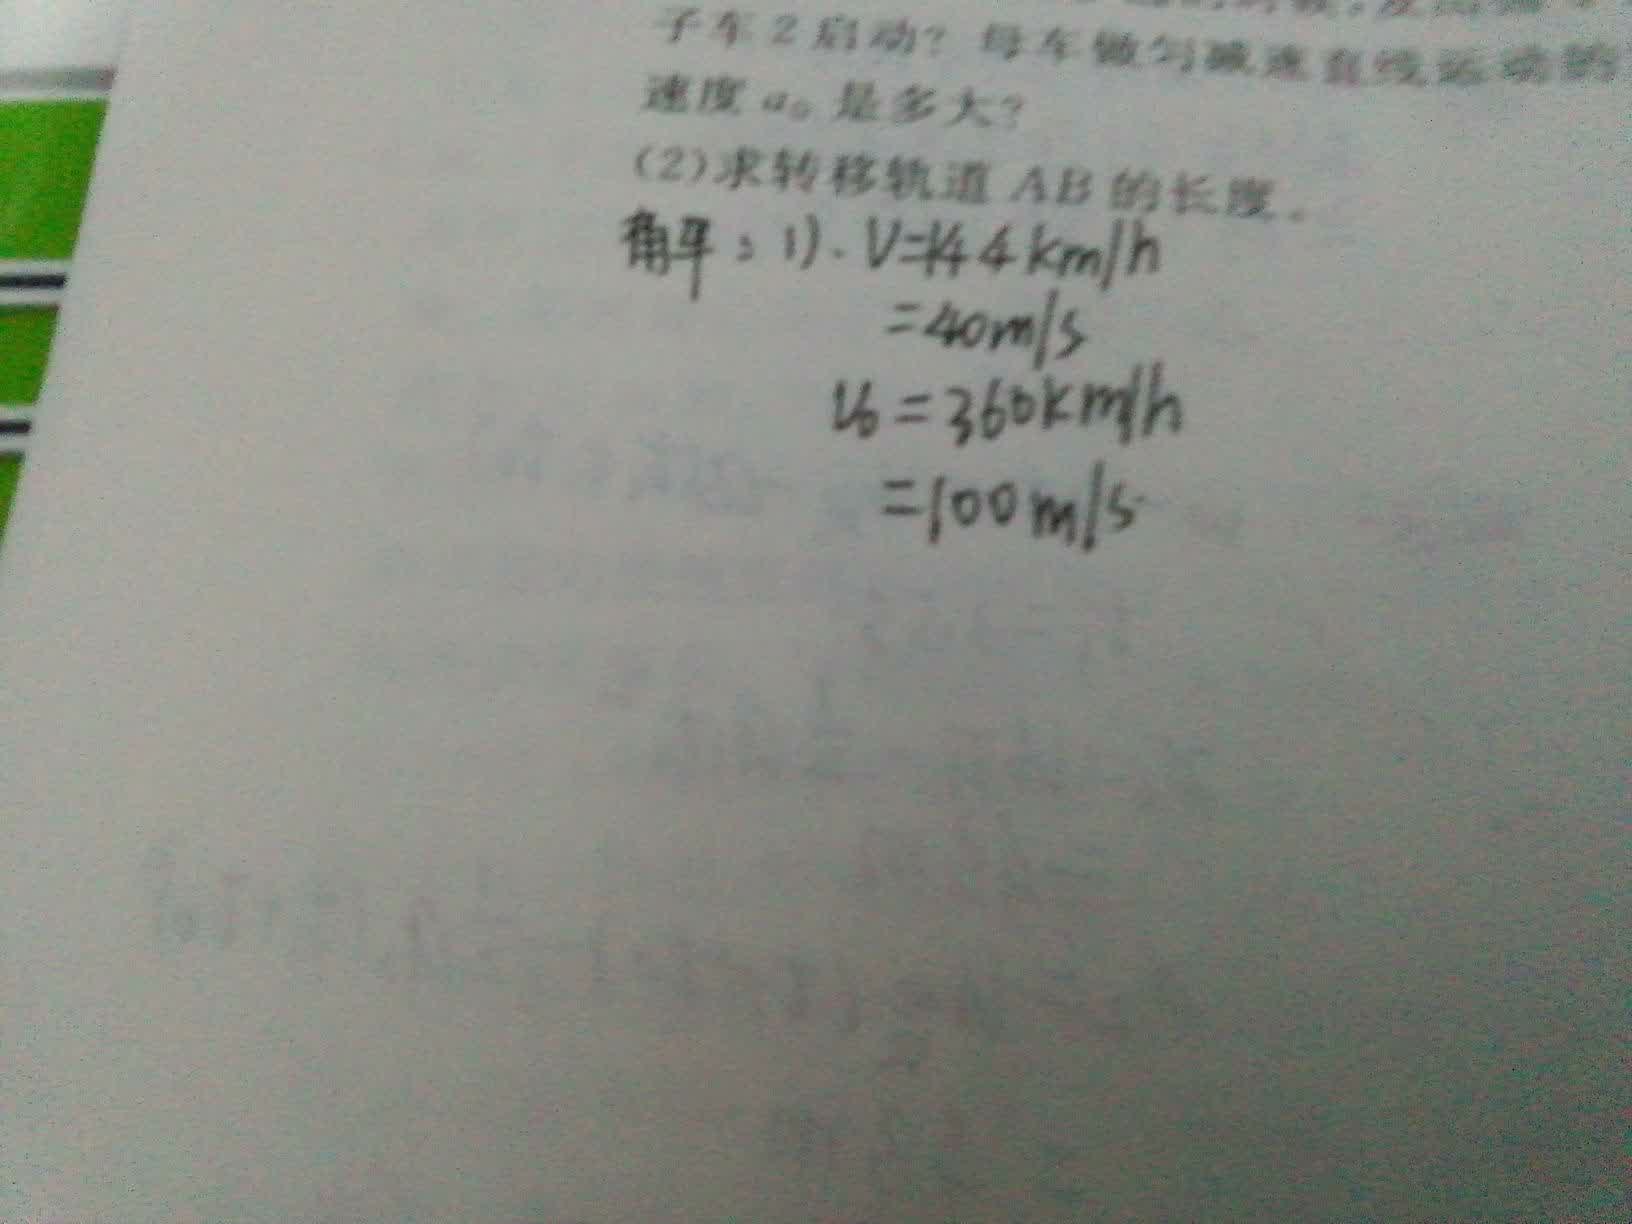 子车2启动?母车做匀减速直线运动的
速度a₀是多大?
(2)求转移轨道AB的长度。
解:1).V=144km/h
=40m/s
V₀=360km/h
=100m/s